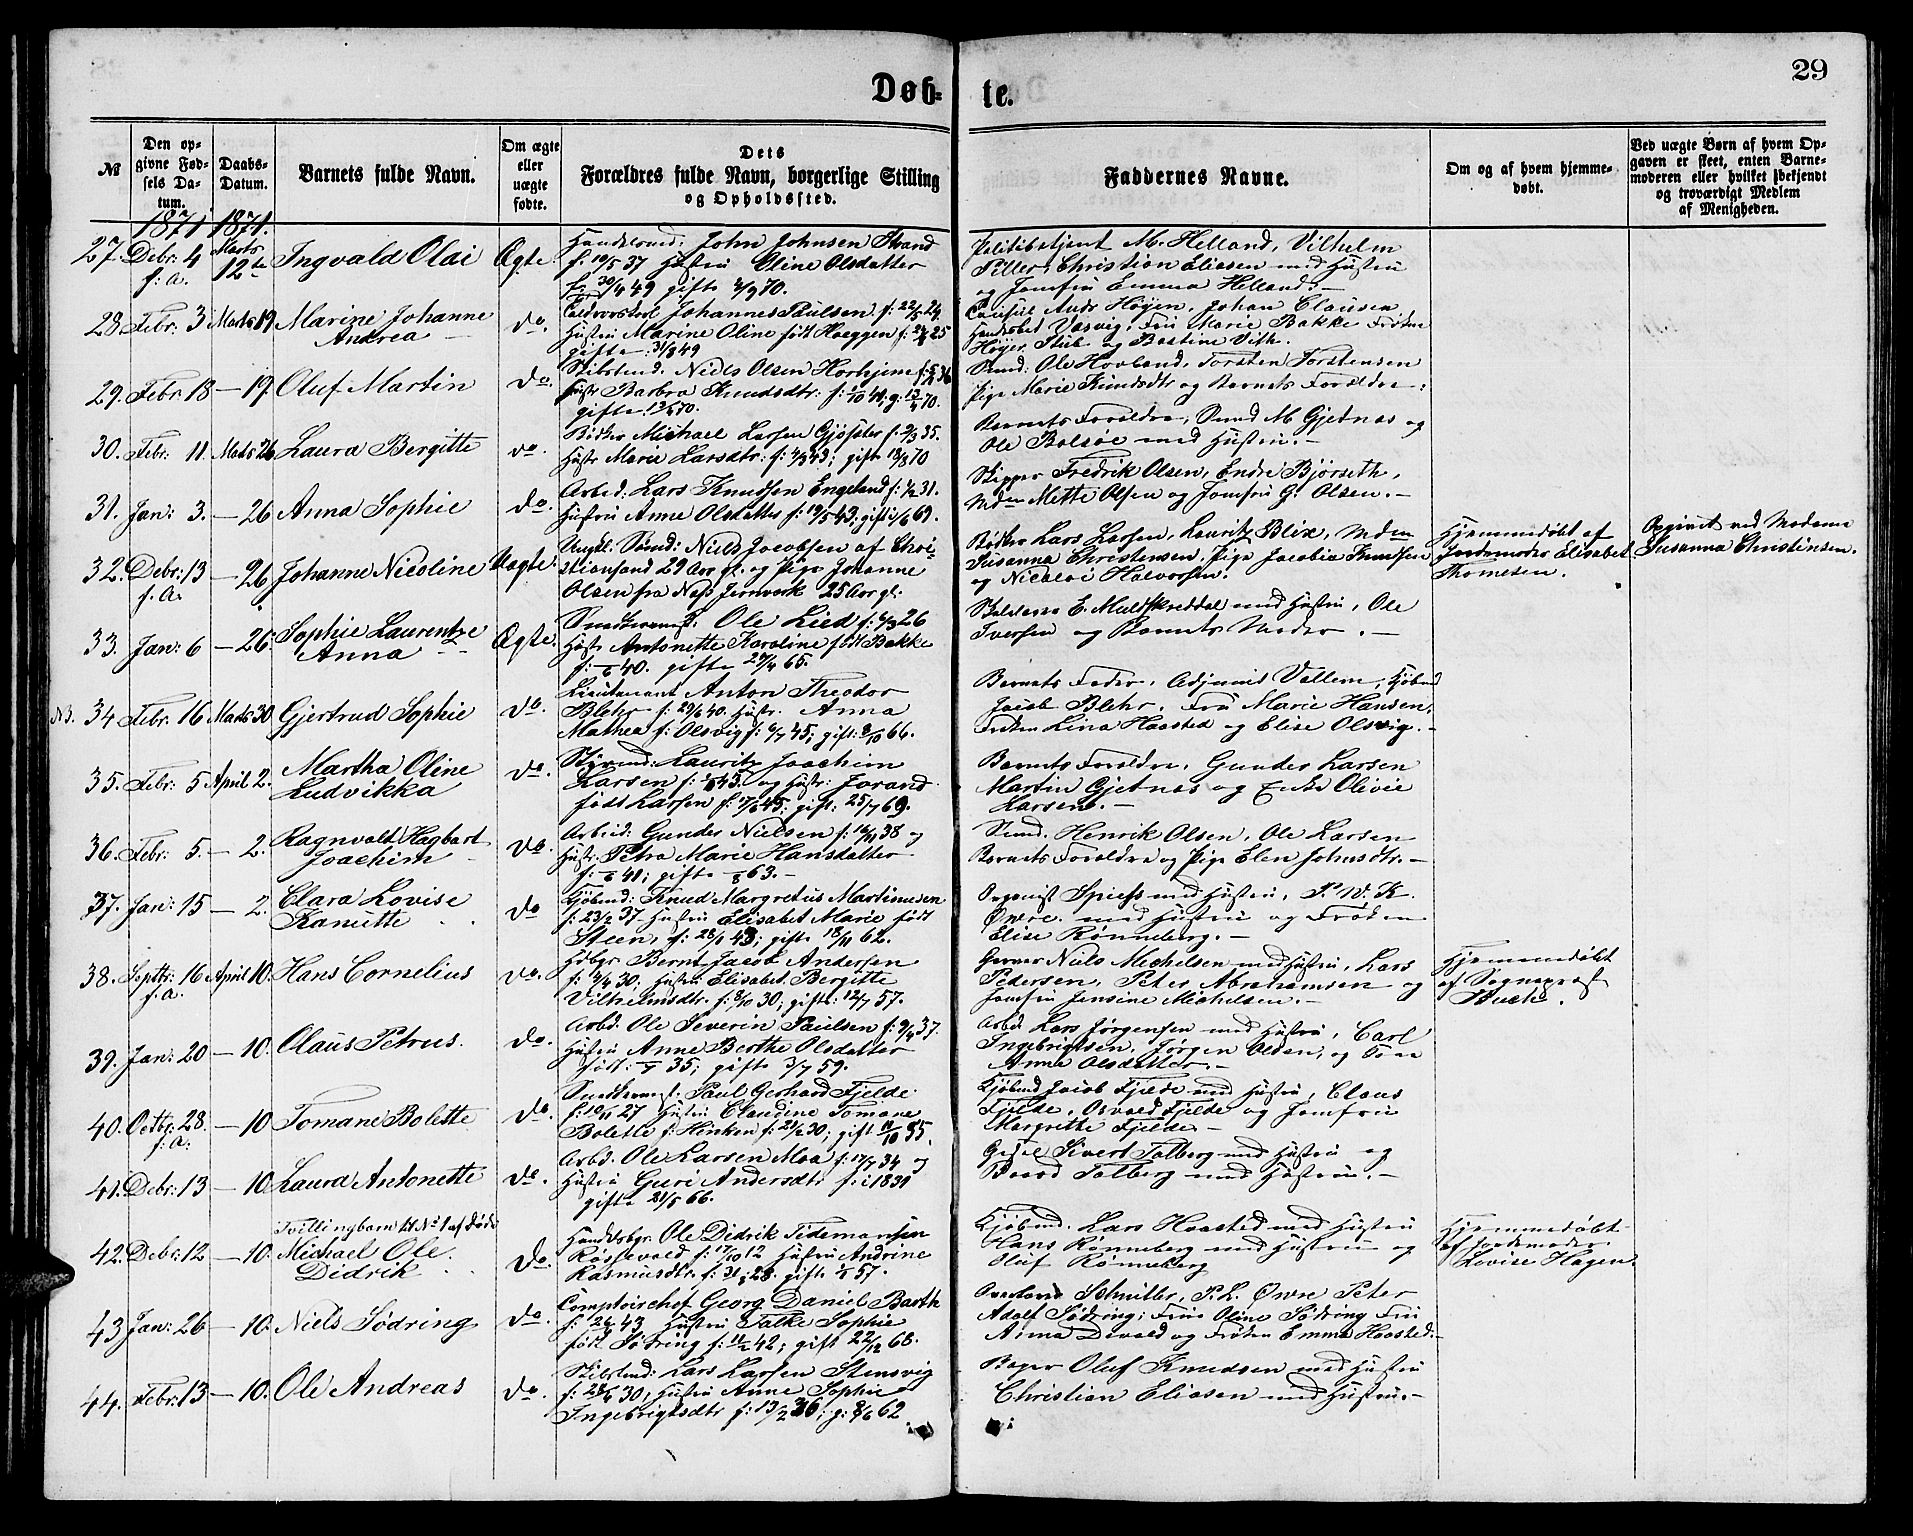 29
Døb-
te.
№
Den op-
givne Fød-
sels Da-
tum.
Daabs-
Datum.
Barnets fulde Navn.
Om ægte
eller
uægte
fødte.
Dets
Forældres fulde Navn, borgerlige Stilling
og Opholdssted.
Faddernes Navne.
Om og af hvem hjemme-
døbt.
Ved uægte Børn af hvem Op-
gaven er skeet, enten Barne-
moderen eller hvilket bekjendt
og troværdigt Medlem
af Menigheden.
1871 1871.
27. Debr. 4 f. A. Marts 12te Ingvald Olai Ægte
John Johnsen Strand
f. 10/5 37 Hustru Oline Olsdatter
f. 30/4 49 gifte 2/9 70.
Politibetjent M. Helland, Vilhelm
Piller, Christian Eliasen med Hustru
og Jomfru Emma Helland.
28. Febr. 3 Marts 19 Marine Johanne
Andrea do.
Johannes Paulsen f. 22/5 24.
Hustru Marine Oline født Hoeggen
gifte 31/8 49
Consul Andr Høyen, Johan Clausen
Vasvig, Fru Marie Bakke Frøken
Høyer, Stub og Bastine Vith.
29. Febr. 18 — 19. Oluf Martin do.
Niels Olsen Horhjem
Hustr Barbra Knudsdtr. f. 1/10 41;
gifte 70.
Ole Hovland, Torsten Torstensen
Pige Marie Knudsdtr og Barnets Forældre.
30. Febr. 11. Marts 26 Laura Bergitte do.
Bødker Michael Larsen Gjøsster f. 9/3 35.
Hustr Marie Larsdtr. f. 4/3 43; gifte 18/8 70
Barnets Forældre, M Gjetnæs og
Ole Bolsøe med Hustru.
31. Jan: 3. — 26 Anna Sophie do.
Arbed: Lars Knudsen Engeland f. 1/2 31.
Hustru Anne Olsdatter f. 19/5 43; gifte 1/6 69.
Skipper Fredrik Olsen, Endre Bjørseth,
Mdm Mette Olsen og Jomfru G. Olsen.
32. Debr. 13 f. A. — 26 Johanne Nicoline Uægte.
Ungkl. Sømd: Niels Jacobsen af Chri-
stiansand 29 Aar gl. og Pige Johanne
Olsen fra Næs Jernverk 25 Aar gl.
Bødker Lars Larsen, Lauritz Blix, Mdm
Susanna Christensen, Pige Jacobia Knudsen
og Nicolai Halvorsen.
Hjemmedøbt af
Jordemoder Elisabet
Thomesen.
Opgivet ved Madame
Susanna Christensen.
33. Jan: 6 — 26. Sophie Laurentze
Anna Ægte.
Ole Lied f. 4/3 26
Hustr Antonette Karoline født Bakke
f. 40. gifte 27/4 65.
E. Muldskreddal med Hustru, Ole
Iversen og Barnets Moder.
N3. 34 Febr. 16 Marts 30 Gjertrud Sophie do.
Lieutenant Anton Theodor
Blehr f. 29/6 40. Hustr. Anna
Mathea f: Olsvig f. 6/7 45; gift. 9/10 66.
Barnets Fader, Adjunct Vellem, Kjøbmd
Jacob Blehr, Fru Marie Hansen,
Frøken Lina Haasted og Elise Olsvig.
35. Febr. 5 April 2. Martha Oline
Ludvikka do.
Styrmd: Lauritz Joachim
Larsen f. 43. og Hustr: Jorand
født Larsen f. 17/6 45; gift. 25/7 69.
Barnets Forældre, Gunder Larsen
Martin Gjetnæs og Enke Olivie
Larsen.
36. Febr: 5. — 2. Ragnvald Hagbart
Joachim do.
Arbeid: Gunder Nielsen f. 16/11 38 og
Hustr. Petra Marie Hansdatter
f. 41; gifte 63.
Henrik Olsen, Ole Larsen
Barnets Forældre og Pige Elen Johnsdtr.
37. Jan: 15 — 2. Clara Lovise
Kanutte do
Kjøbmd: Knud Margretus Martinusen
f. 23/2 37. Hustru Elisabet Marie født
Steen, f. 28/1 43; gifte 18/11 62.
Organist Spiess med Hustru, P. W. K
Øwre med Hustru og Frøken
Elise Rønneberg.
38. Septbr. 16 f. a. April 10. Hans Cornelius do.
Bernt Jacob Andersen
f. 9/4 30; Hustru Elisabet Bergitte
Vilhelmsdtr. f. 8/10 30; gift. 12/7 57.
Garver Niels Michelsen med Hustru, Lars
Petersen, Peter Abrahamsen og
Jomfru Jensine Michelsen.
Hjemmedøbt
af Sogneprest
39. Jan: 20 — 10. Olaus Petrus. do.
Arbd: Ole Severin Paulsen f. 9/4 37.
Hustru Anne Berthe Olsdatter
født: 35; gifte 3/7 59.
Arbd: Lars Jørgensen med Hustru, Carl
Ingebrigtsen, Jørgen Olsen, og
Anna Olsdatter.
40. Octbr. 28. f. A. — 10 Tomane Bolette do.
Paul Gerhard Fjelde
f. 10/11 27 Hustru Claudine Tomane
Bolette f: Hinken f. 21/2 30; gift 11/10 55.
Kjøbmd Jacob Fjelde med Hustru, Claus
Fjelde, Osvald Fjelde og Jomfru
Margrethe Fjelde.
41. Debr. 13 — 10. Laura Antonette do.
Arbd. Ole Larsen Moa f. 17/7 34 og
Hustru Guri Andersdtr f. i 1831
gifte 21/5 66.
Sivert Talberg med Hustru og
Talberg med Hustru.
42. Debr: 12 — 10. Tvillingbarn til No 1 af Døde
Michael Ole.
Didrik do.
Handelsbgr. Ole Didrik Tidemansen
Røssevold f. 17/10 12 Hustru Andrine
Rasmusdtr. f. 31/ 28. gifte 57.
Kjøbmd. Lars Haasted med Hustru
Hans Rønneberg med Hustru og
Oluf Rønneberg
Hjemmedøbt
af Jordemoder
Lovise Hagen.
43 Jan: 26 — 10. Niels Sødring do.
Comptoirchef Georg Daniel Barth
f. 43 Hustru Talke Sophie
født Sødring f. 42; gift 22/12 68.
Schnitler, P. L. Øwre Peter
Adolf Sødring; Frue Oline Sødring Fru
Anna Devold og Frøken Emma Haasted.
44. Febr. 13 — 10. Ole Andreas do.
Lars Larsen Stensvig
f. 30, Hustru Anne Sophie
Ingebrigtsdtr f. 13/2 36; g: 8/6 62
Bager Oluf Knudsen med Hustru
Christian Eliasen med Hustru.